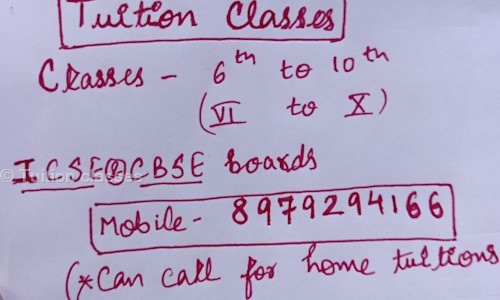 Tuition Classes
Classes - 6th to 10th
(VI to X)
ICSE@CBSE boards
© Tuition classes
Mobile - 8979294166
(*Can call for home tuitions